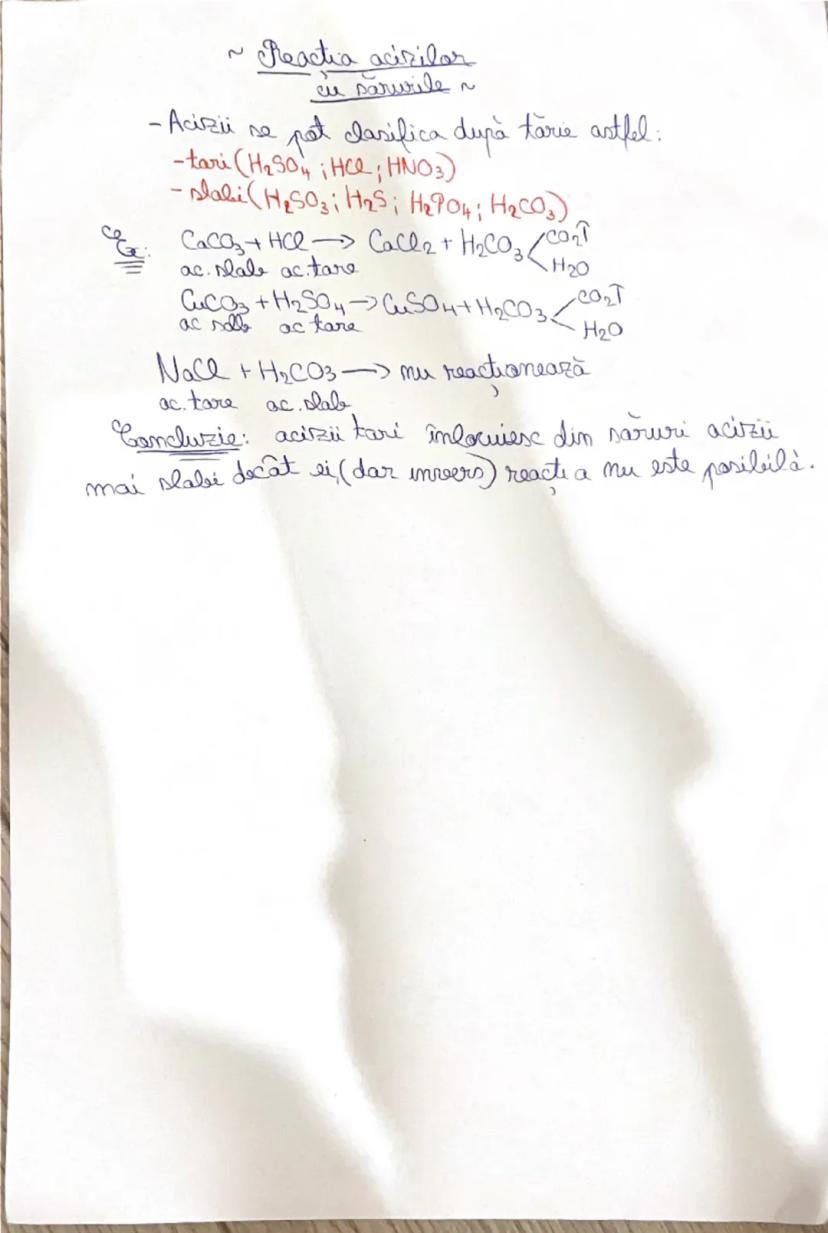 ~ Reactia acizilor
cu sărurile ~
- Acizii se pot clasifica după tărie astfel:
- tari (H2SO4 ; HCl ; HNO3)
- slabi (H2SO3 ; H2S ; H2PO4 ; H2CO3)
Ex: CaCO3 + HCl → CaCl2 + H2CO3 < CO2↑
H2O
ac. slab ac. tare
CuCO3 + H2SO4 → CuSO4 + H2CO3 < CO2↑
H2O
ac slab ac tare
NaCl + H2CO3 → nu reacționează
ac. tare ac. slab
Concluzie: acizii tari înlocuiesc din săruri acizii
mai slabi decât ei, (dar invers) reacția nu este posibilă.